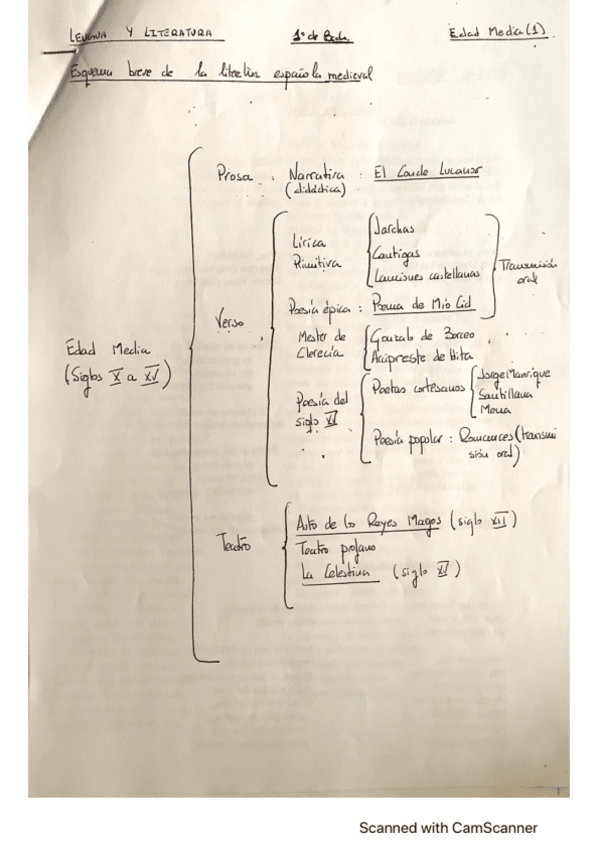 LENGUA Y LITERATURA 1º de Bach. Edad Media (1).
Esquema breve de la española medieval
Prosa . Narrativa : El Conde Lucanor
(didáctica)
Jarchas
Lírica
Cautigas
Primitiva
Canciones castellanas
Transmisión
oral
Poesía épica : Poema de Mio Cid
Verso
Mester de
Clerecía
Gonzalo de Berceo
Arcipreste de Hita
Edad Media
(Siglos X a XV)
Poesía del
siglo XV
Poetas cortesanos
Jorge Manrique
Santillana
Mena
Poesía popular : Romances (transmi
sión oral)
Teatro
Auto de los Reyes Magos (siglo XII)
Teatro profano
La Celestina (siglo XV)
Scanned with CamScanner